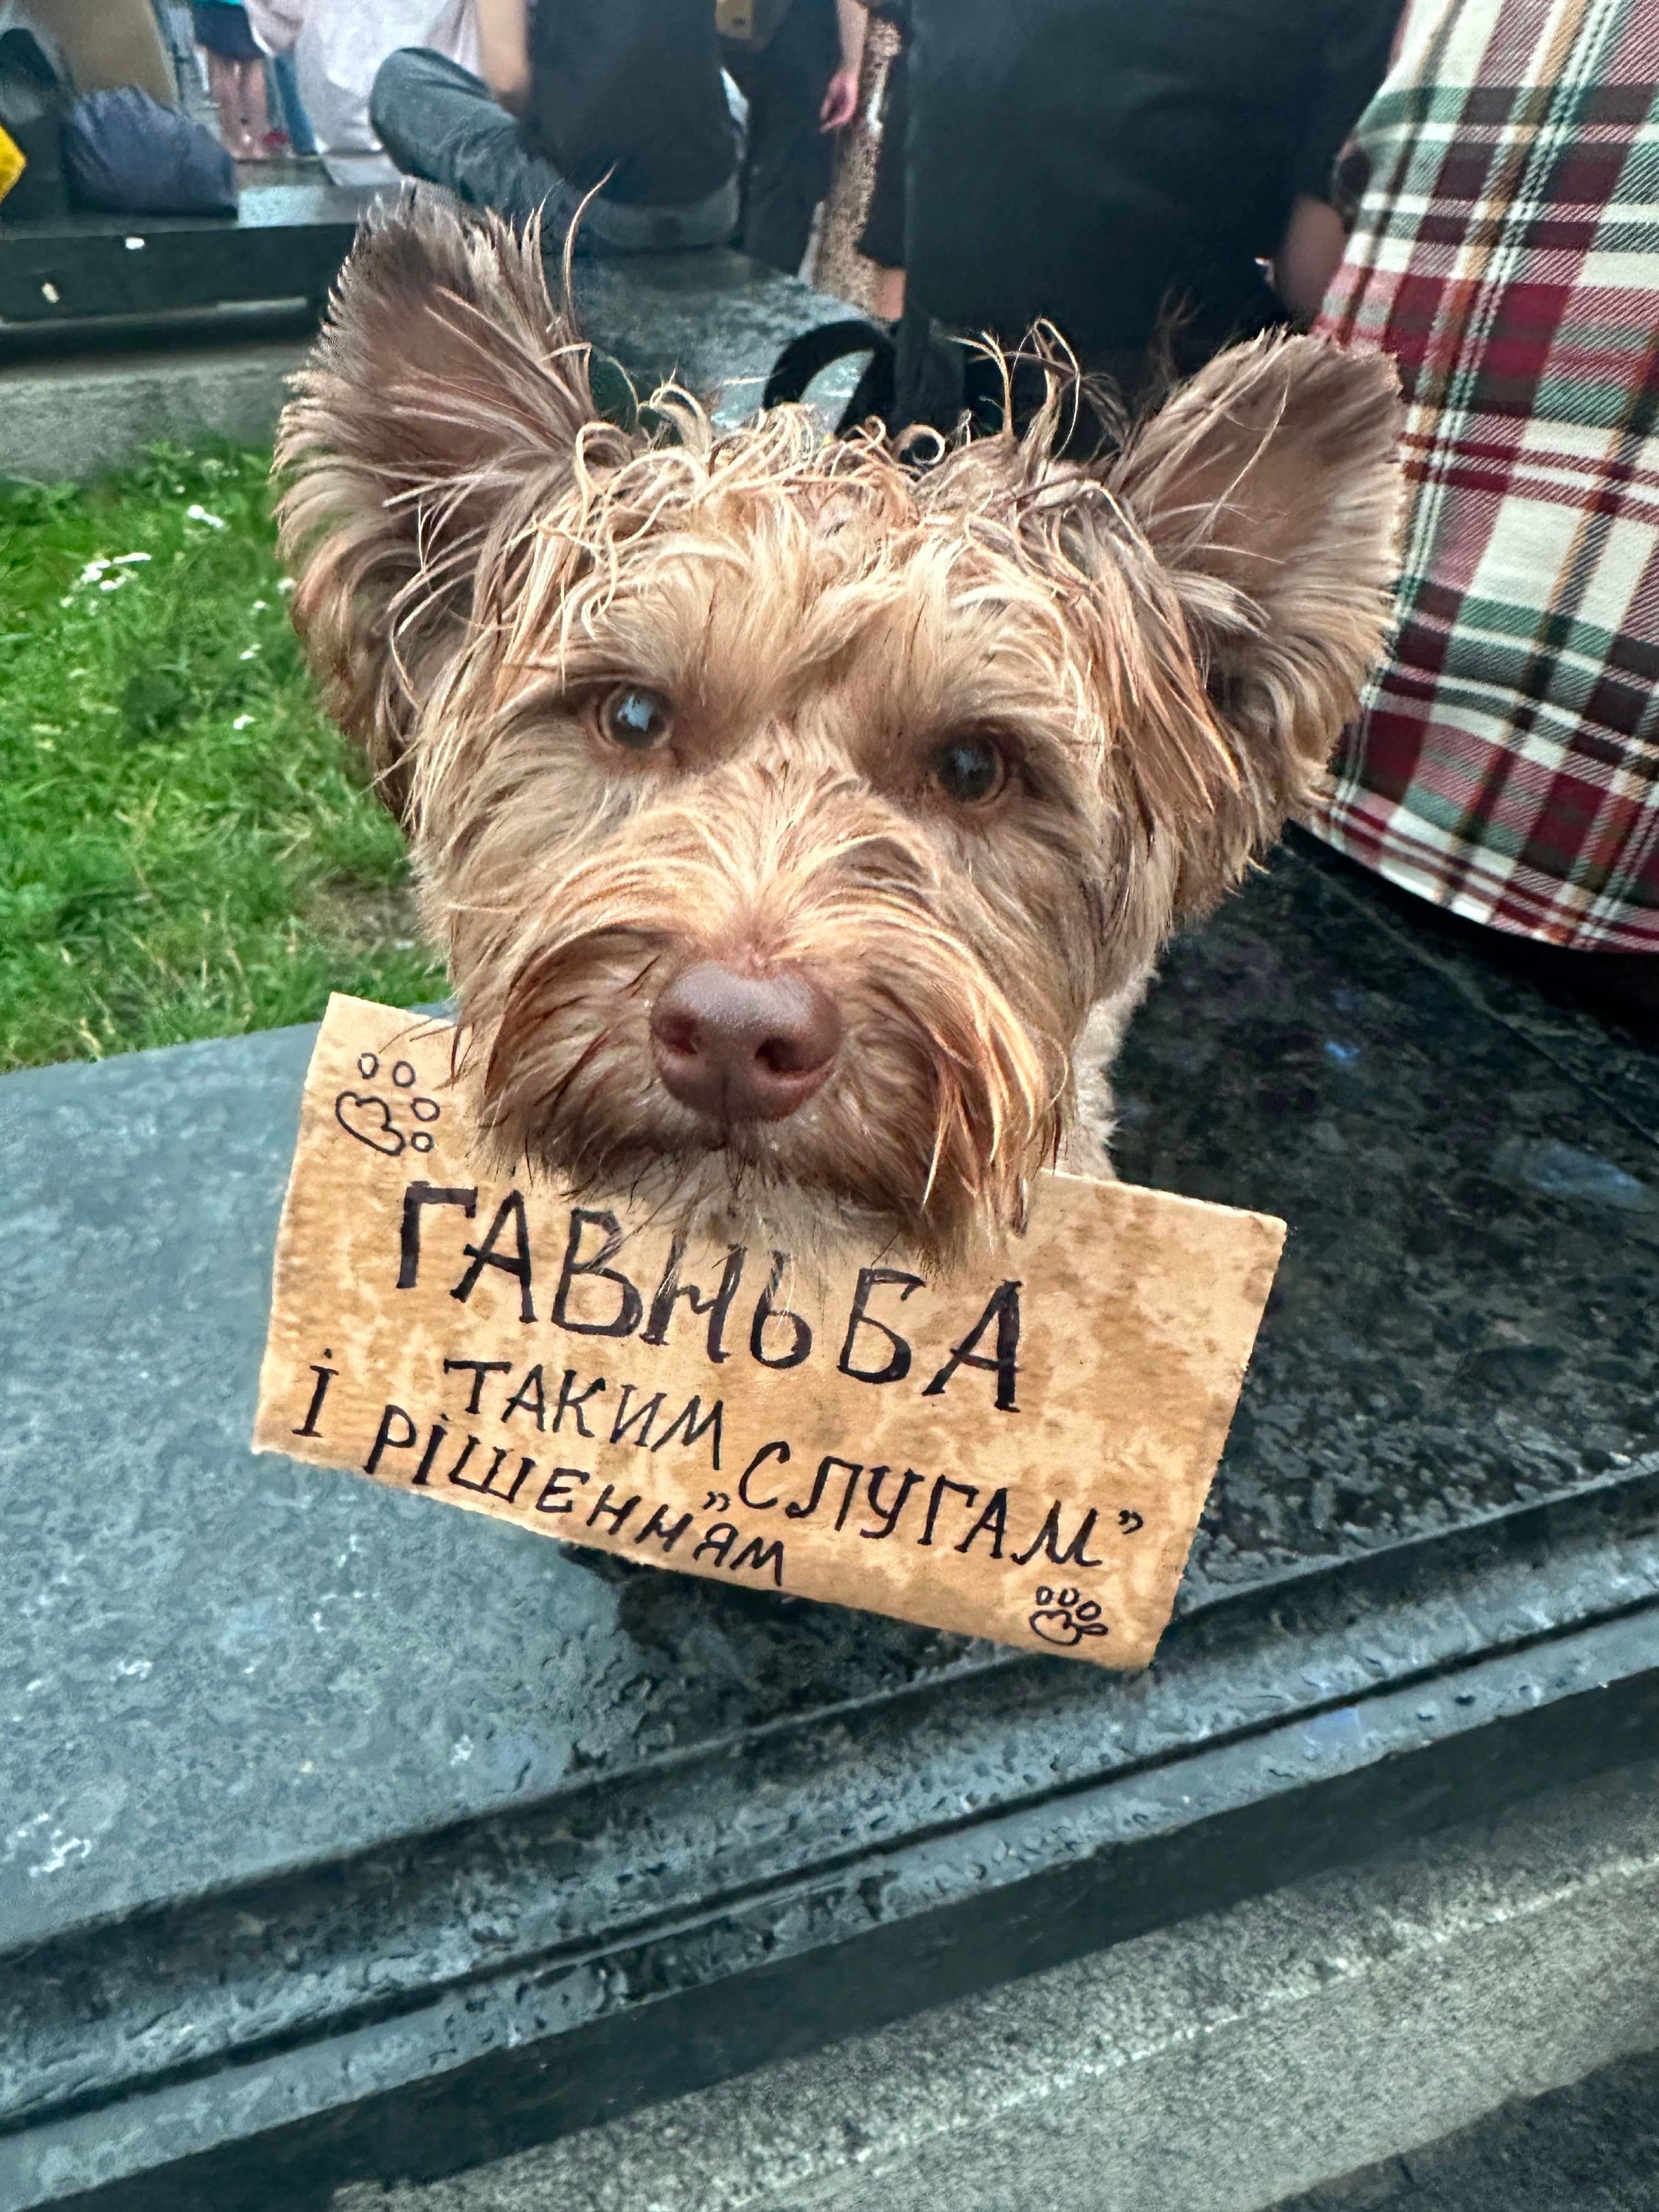 ГАВНЬБА
ТАКИМ „СЛУГАМ”
І РІШЕННЯМ